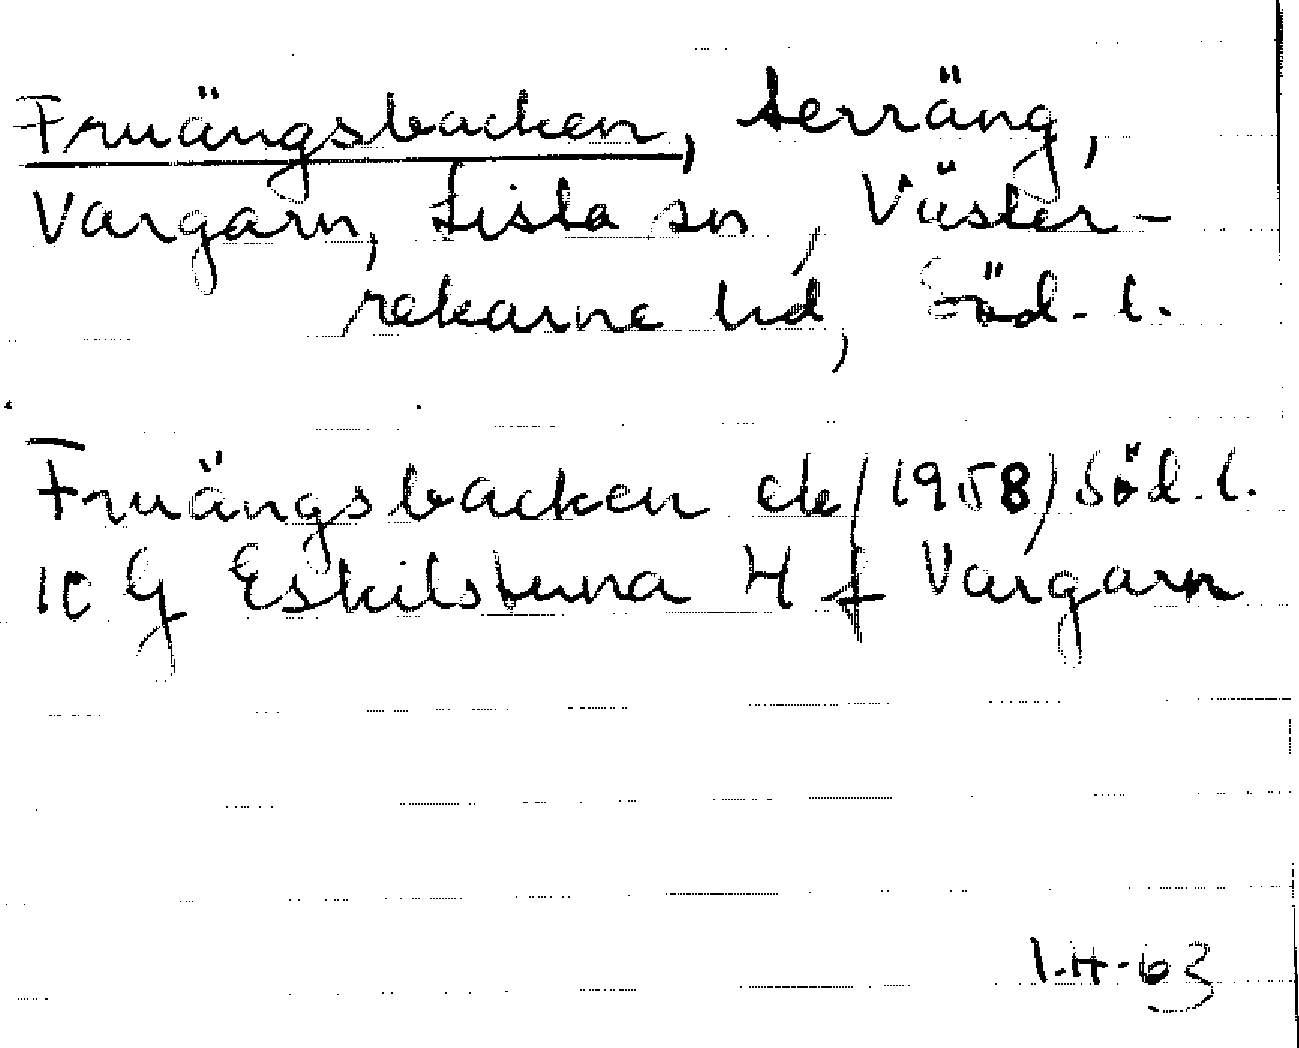 Fruängsbacken, terräng,
Vargarn, Lista sn, Väster-
rekarne hd, Söd. l.
Fruängsbacken ek (1958) Söd. l.
10 G Eskilstuna 4 f Vargarn
1.4.63